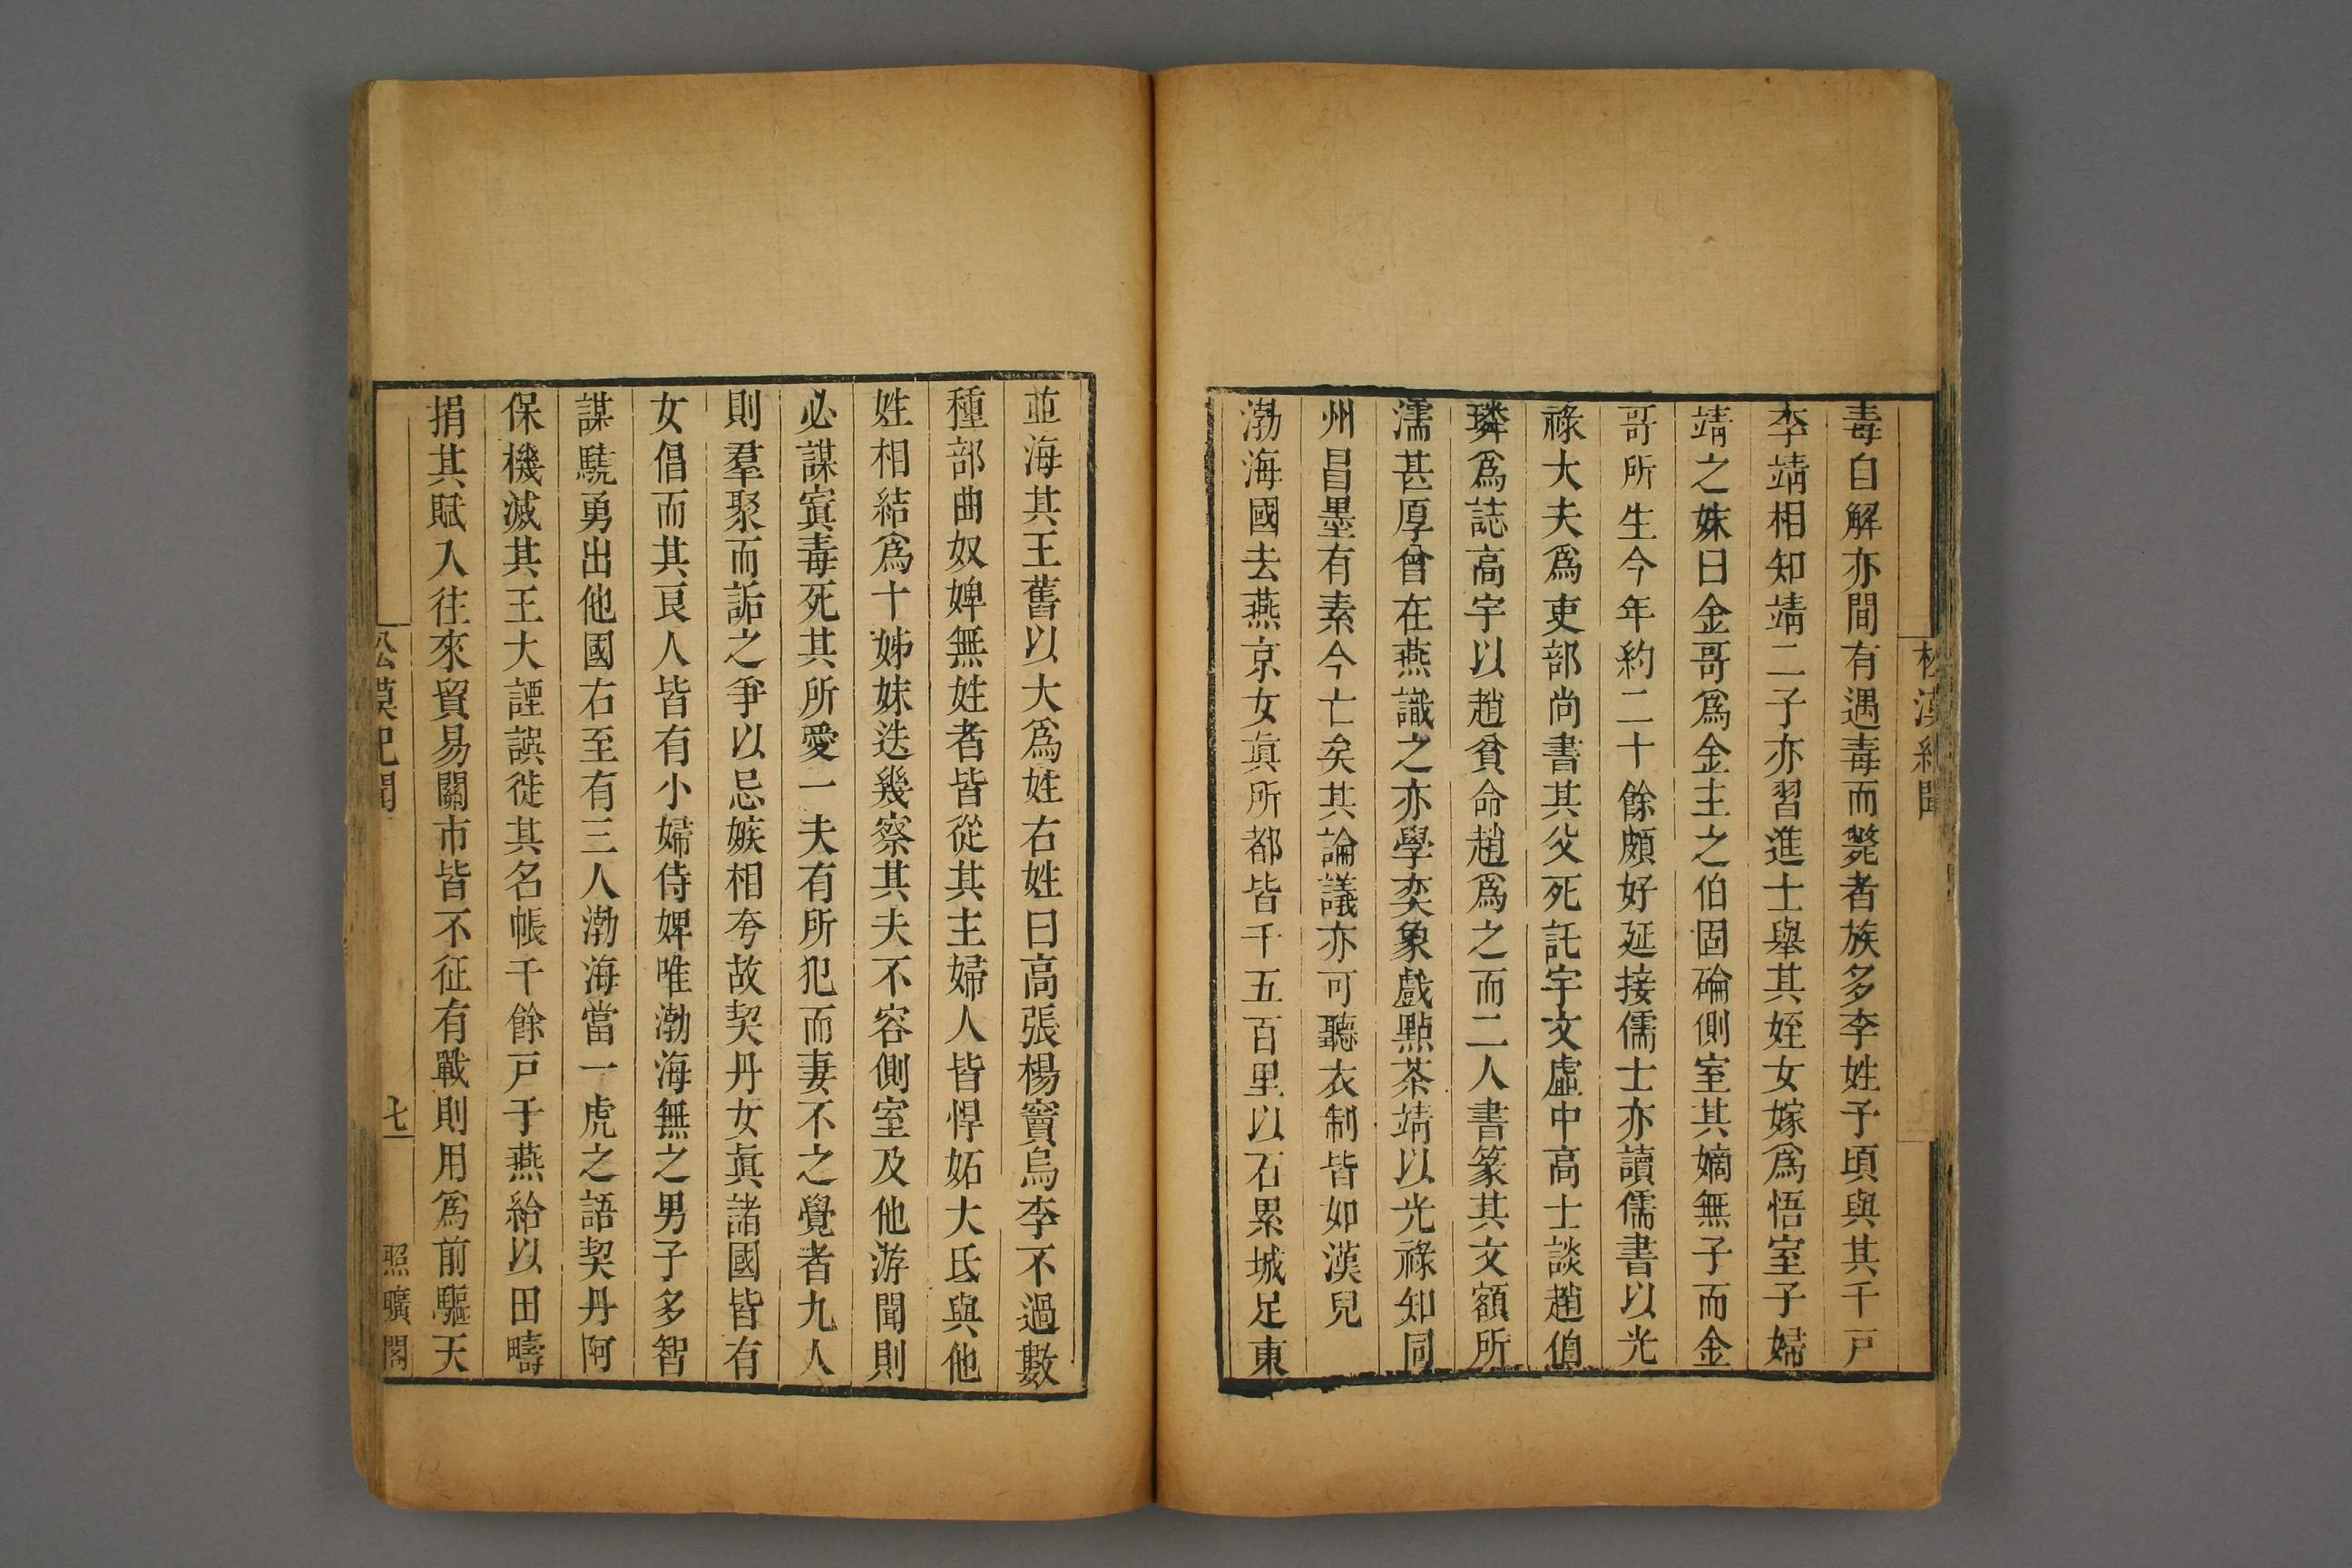 松漠紀聞
毒自解亦間有遇毒而斃者族多李姓予頃與其千戸
李靖相知靖二子亦習進士舉其姪女嫁爲悟室子婦
靖之妹曰金哥爲金主之伯固碖側室其嫡無子而金
哥所生今年約二十餘頗好延接儒士亦讀儒書以光
祿大夫爲吏部尚書其父死託宇文虛中高士談趙伯
璘爲誌高宇以趙貧命趙爲之而二人書篆其文額所
濡甚厚曾在燕識之亦學奕象戲點茶靖以光祿知同
州昌墨有素今亡矣其論議亦可聽衣制皆如漢兒
渤海國去燕京女真所都皆千五百里以石累城足東
並海其王舊以大爲姓右姓曰高張楊竇烏李不過數
種部曲奴婢無姓者皆從其主婦人皆悍妬大氐與他
姓相結爲十姊妹迭幾察其夫不容側室及他游聞則
必謀寘毒死其所愛一夫有所犯而妻不之覺者九人
則羣聚而詬之爭以忌嫉相夸故契丹女真諸國皆有
女倡而其良人皆有小婦侍婢唯渤海無之男子多智
謀驍勇出他國右至有三人渤海當一虎之語契丹阿
保機滅其王大諲譔徙其名帳千餘戸于燕給以田疇
捐其賦入往來貿易關市皆不征有戰則用爲前驅天
松漠紀聞
七
照曠閣